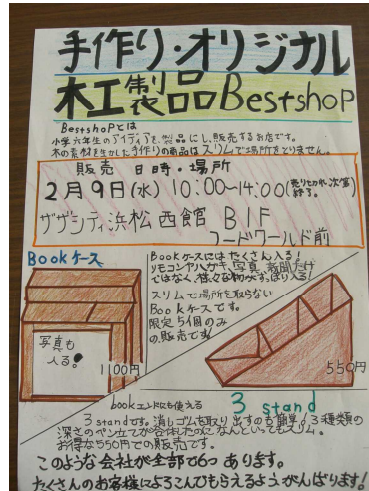 手作り・オリジナル
木工製品Bestshop
Bestshopとは
小学六年生のアイディアを、製品にし、販売するお店です。
木の素材を生かした手作りの商品はスリムで場所をとりません。
販売 日時・場所
2月9日(水) 10:00~14:00(売りきれ次第終了。)
ザザシティ浜松西館 B1F
フードワールド前
Bookケース
Bookケースにはたくさん入る!
リモコンやハガキ、写真、新聞だけ
ではなく、様々な物がすっぽり入る!
スリムで場所を取らない
Bookケースです。
限定5個のみ
の販売です!
写真も
入る!
1100円
550円
bookエンドにも使える
3 stand
3 standです。消しゴムを取り出すのも簡単。3種類の
深さのペン立てが合体したのになんといってもスリム。
お得な550円での販売です。
このような会社が全部で6つあります。
たくさんのお客様によろこんでもらえるようがんばります!